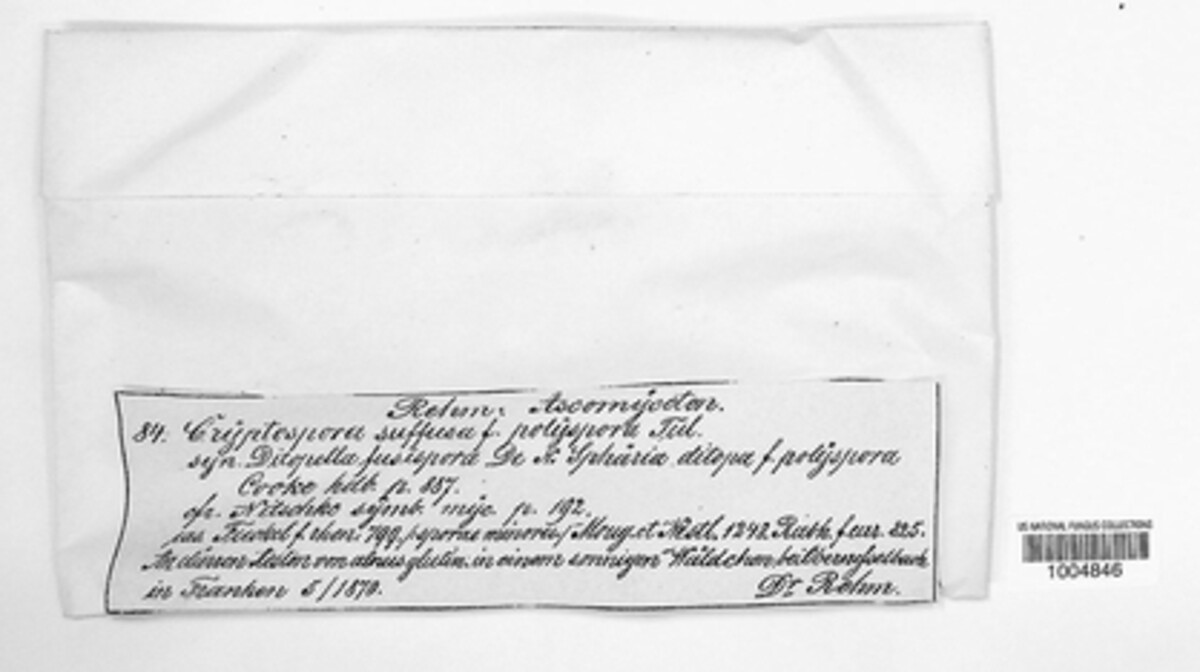 Rehm: Ascomyceten.
84. Cryptospora suffusa f. polyspora Tul.
syn. Ditopella fusispora De N. Sphäria ditopa f. polyspora
Cooke hdb. p. 887.
cfr. Nitschke symb. myc. p. 192.
ias Fuckel f. rhen. 799, (sporae minores) Moug. et Nestl. 1242. Rabh. f. eur. 225.
An dürren Aesten von alnus glutin. in einem sonnigen Wäldchen bei
in Franken 5/1870. Dr. Rehm.
US NATIONAL FUNGUS COLLECTIONS
1004846